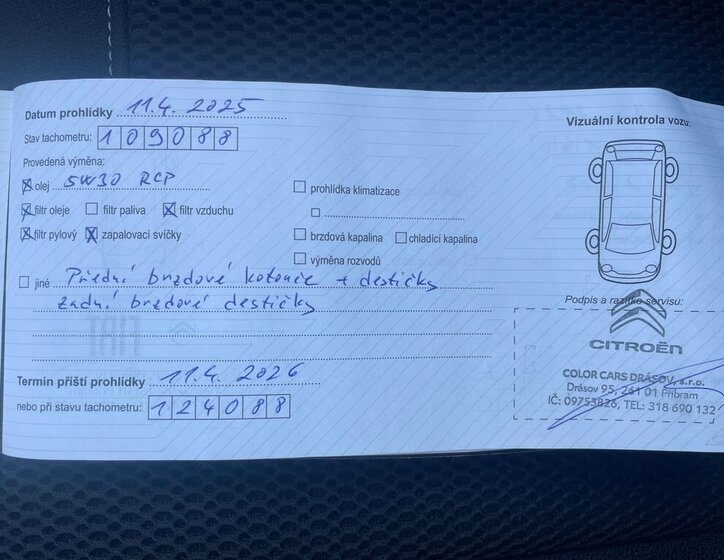 Datum prohlídky 11.4. 2025
Stav tachometru: 109088
Provedená výměna:
olej 5W30 RCP
filtr oleje filtr paliva filtr vzduchu
filtr pylový zapalovací svíčky
prohlídka klimatizace
brzdová kapalina chladící kapalina
výměna rozvodů
jiné Přední brzdové kotouče + destičky
zadní brzdové destičky
Termín příští prohlídky 11.4. 2026
nebo při stavu tachometru: 124088
Vizuální kontrola vozu:
Podpis a razítko servisu:
CITROËN
COLOR CARS DRÁSOV, s.r.o.
Drásov 95, 261 01 Příbram
IČ: 09753826, TEL: 318 690 132